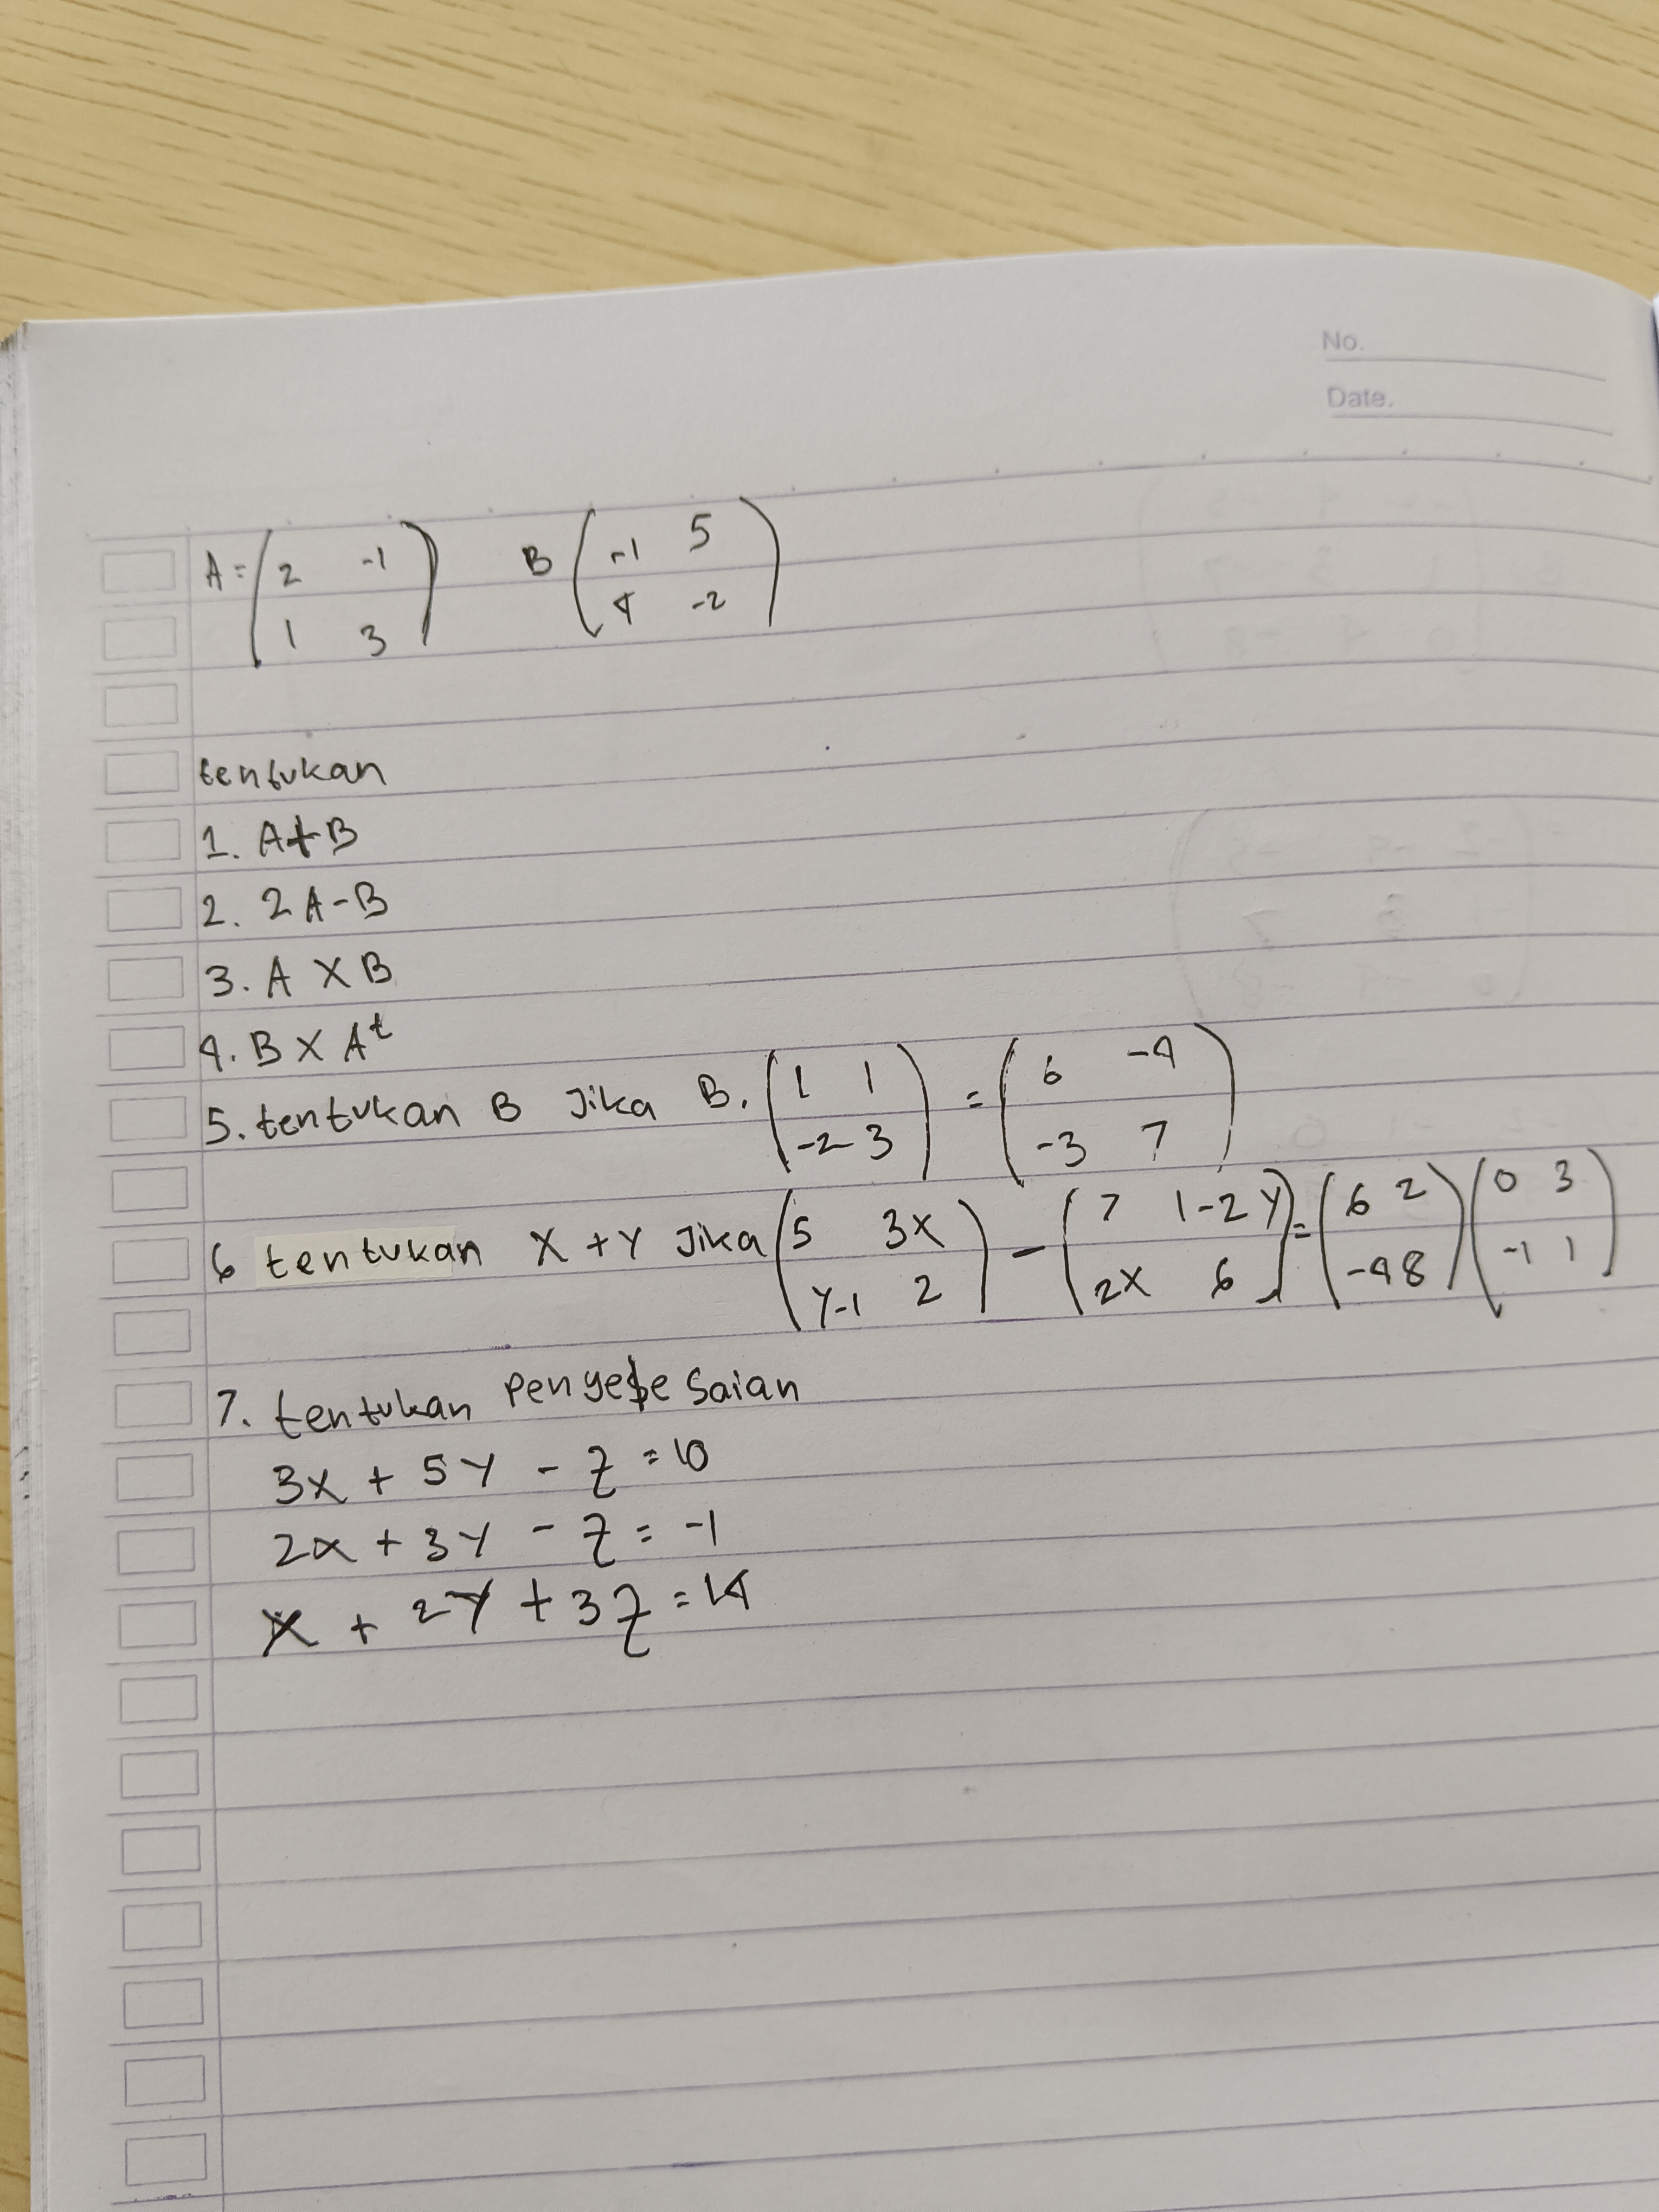 No.
Date.
A = (2 -1
1 3) B (-1 5
4 -2)
tentukan
1. A+B
2. 2A-B
3. A X B
4. B X A^t
5. tentukan B Jika B. (1 1
-2 3) = (6 -4
-3 7)
6 tentukan X + Y Jika (5 3X
Y-1 2) - (7 1-2Y
2X 6) = (6 2
-4 8) (0 3
-1 1)
7. tentukan Penyelesaian
3X + 5Y - Z = 10
2X + 3Y - Z = -1
X + 2Y + 3Z = 14